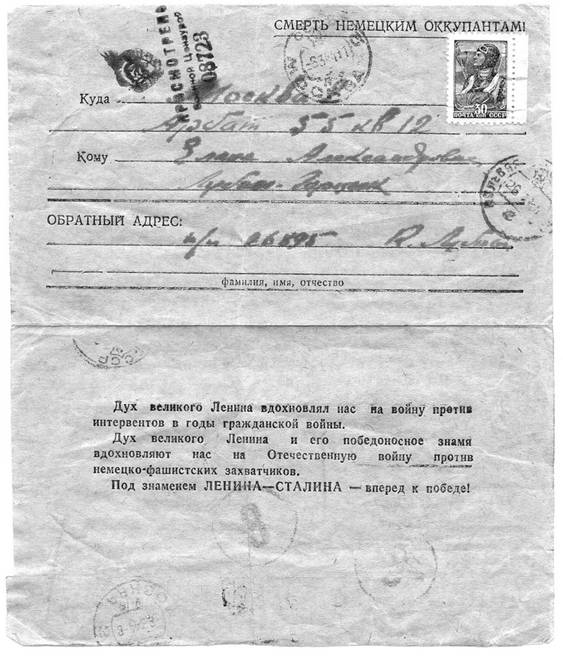 СМЕРТЬ НЕМЕЦКИМ ОККУПАНТАМ!
ПРОСМОТРЕНО
Военной Цензурой
08723
МОСКВА
30
ПОЧТА СССР
Куда Москва
Арбат 55 кв 12
Кому Александровне
ОБРАТНЫЙ АДРЕС:
п/п 06595 К.
фамилия, имя, отчество
СССР
Дух великого Ленина вдохновлял нас на войну против
интервентов в годы гражданской войны.
Дух великого Ленина и его победоносное знамя
вдохновляют нас на Отечественную войну против
немецко-фашистских захватчиков.
Под знаменем ЛЕНИНА—СТАЛИНА — вперед к победе!
8
МОСКВА